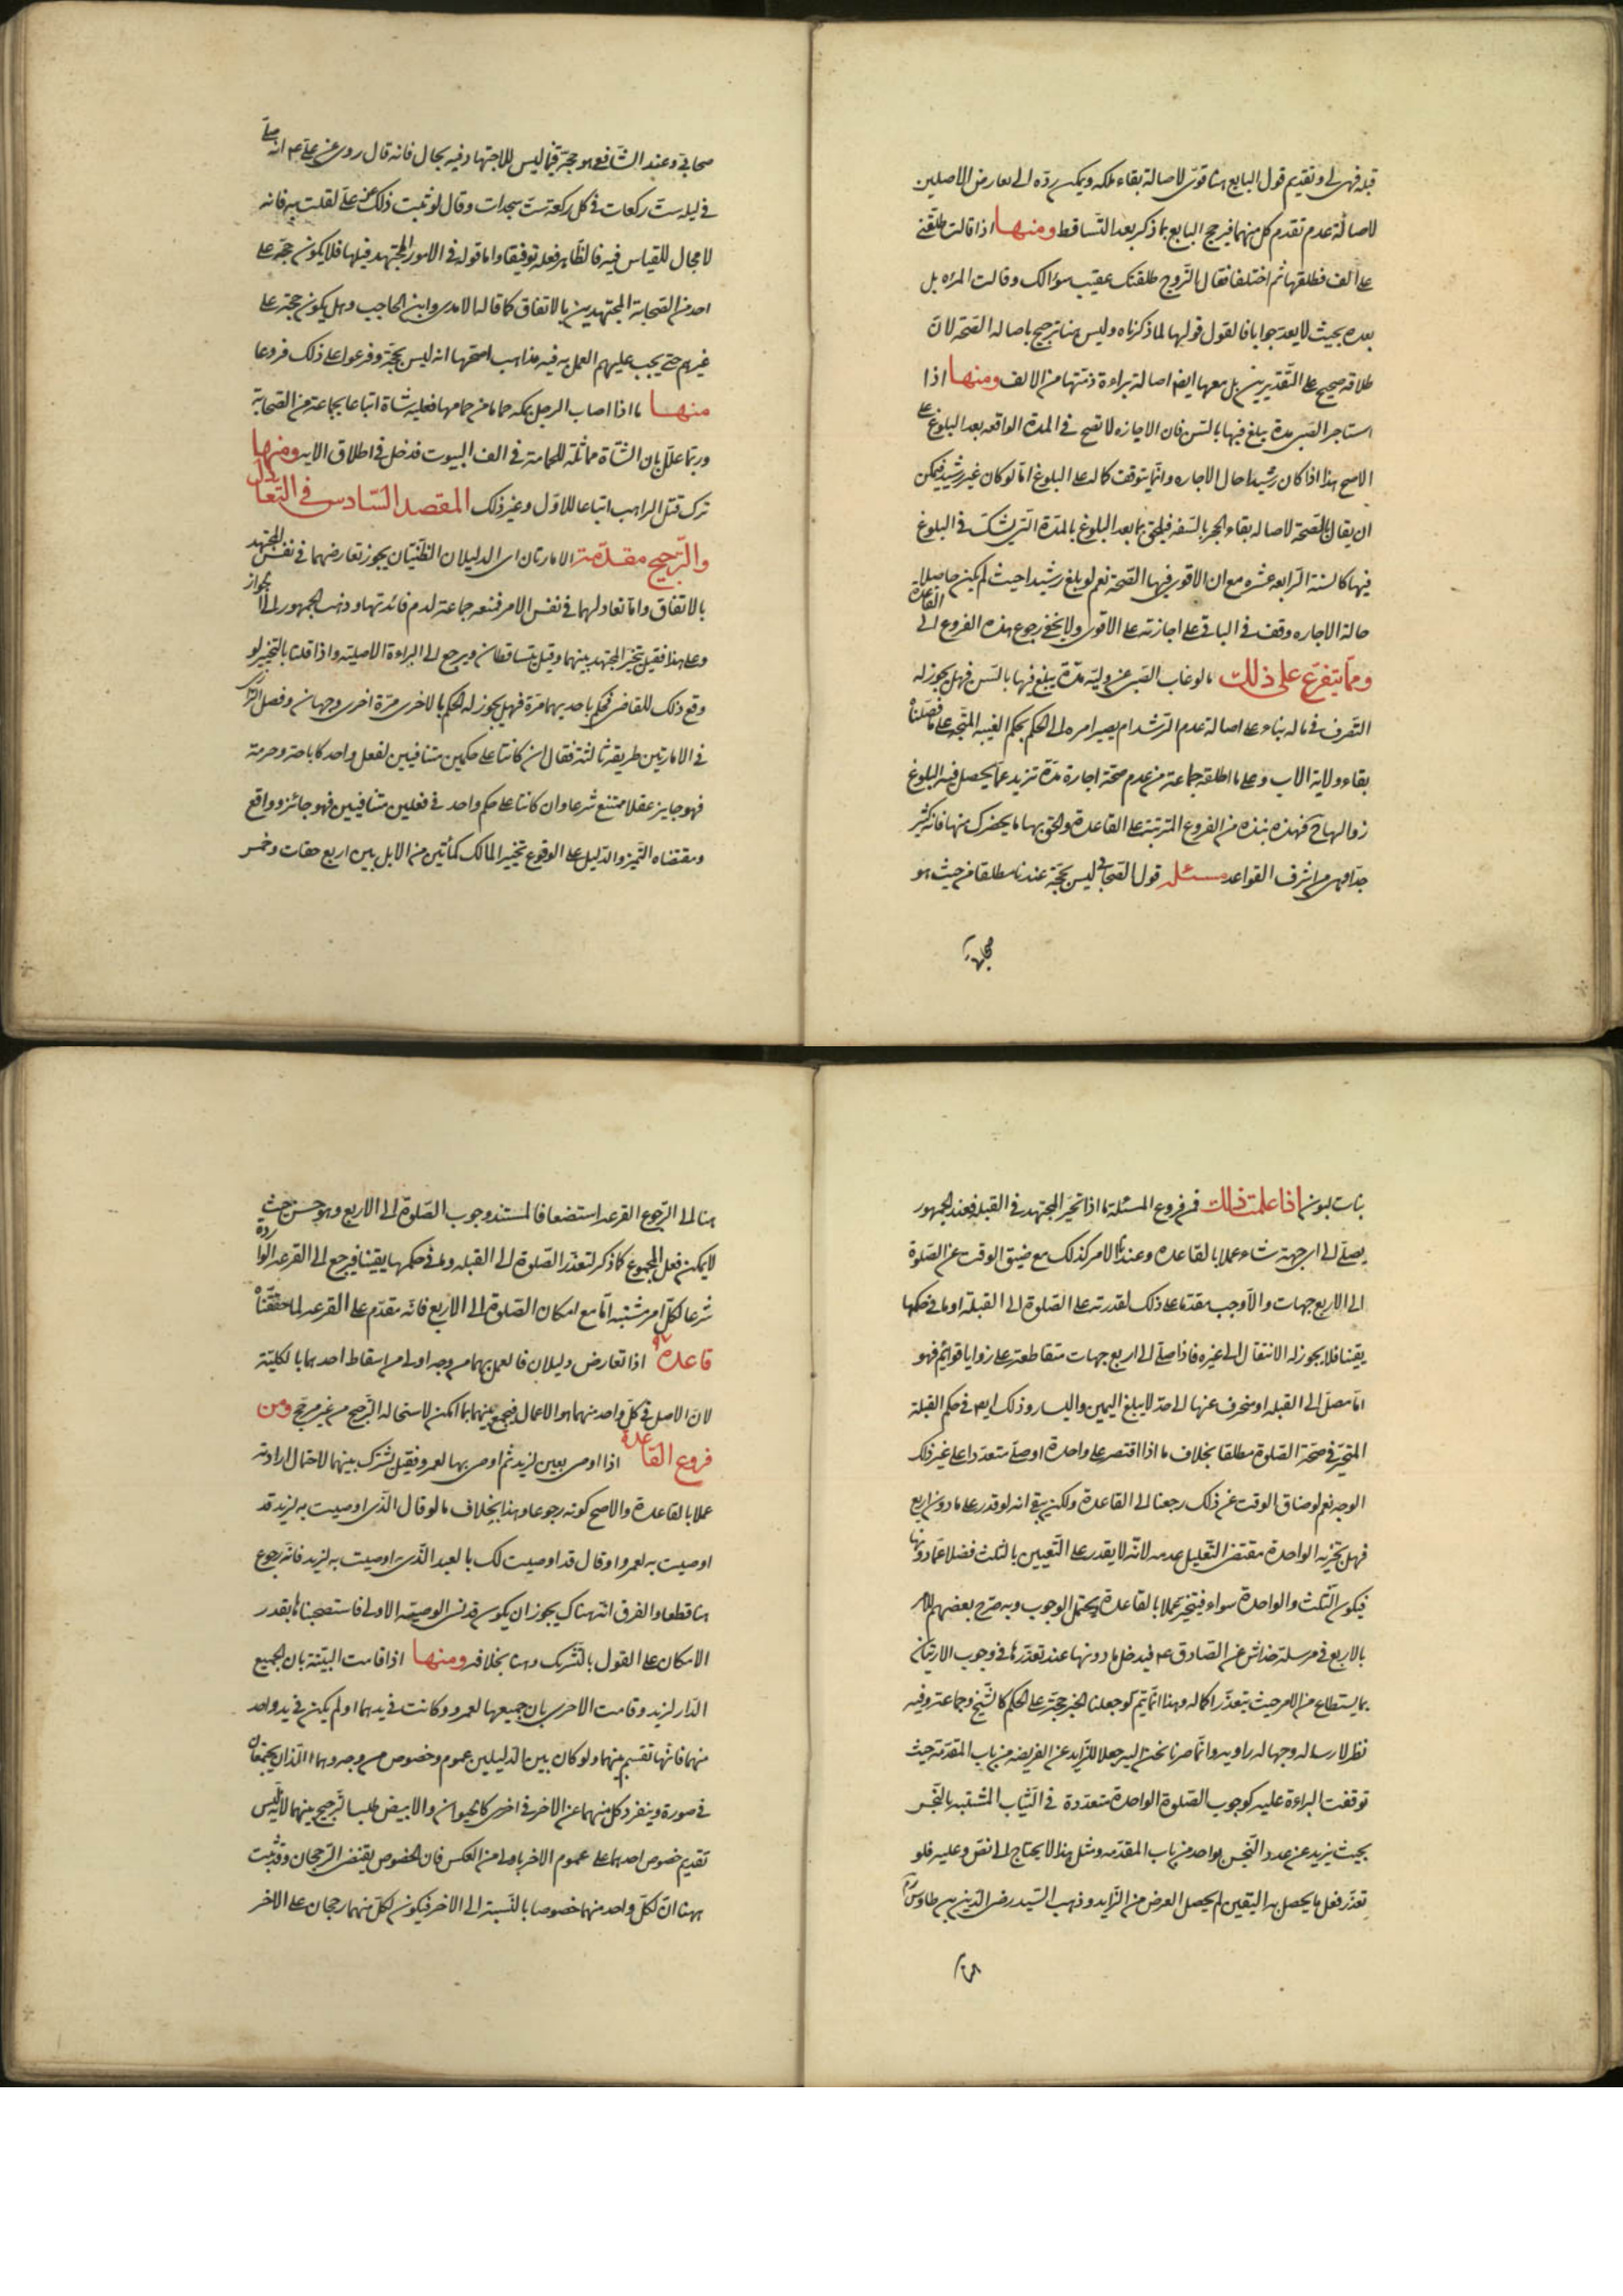 قبله فهى لى وتقديم قول البايع هنا قوى لاصالة بقاء ملكه ويمكن ردّه الى تعارض الاصلين
لاصالة عدم تقدم كل منهما فيرجح البايع بما ذكر بعد التساقط ومنها اذا قالت طلّقنى
على الف فطلقها ثم اختلفا فقال الزّوج طلقتك عقيب سؤالك وقالت المراه بل
بعده بحيث لا يعد جوابا فالقول قولها لما ذكرناه وليس هنا ترجيح باصاله الصّحة لان
طلاقه صحيح على التّقديرين بل معها ايضا اصالة براءة ذمّتها من الالف ومنها اذا
استاجر الصّبى مدة يبلغ فيها بالسّن فان الاجازه لا تصح فى المدة الواقعه بعد البلوغ على
الاصح هذا اذا كان رشيدا حال الاجاره وانّما يتوقف كماله على البلوغ امّا لو كان غير رشيد فيمكن
ان يقال بالصّحة لاصاله بقاء الحجر بالسّفه فيلحق بما بعد البلوغ بالمدّة الّتى يشكّ فى البلوغ
فيها كالسنة الرّابعه عشره مع ان الاقوى فيها الصّحة نعم لو بلغ رشيدا حيث لم يكن حاصلا
حالة الاجاره وقف فى الباقى على اجازته على الاقوى ولا يخفى رجوع هذه الفروع الى القاعدة
وممّا يتفرّع على ذلك ما لو غاب الصّبى عن وليّه مدّة يبلغ فيها بالسّن فهل يجوز له
التّصرف فى ماله بناء على اصالة عدم الرّشد ام يصير امره الى الحكم بحكم الغيبه المتّجه على ما فصّلناه
بقاء ولاية الاب وعلى ما اطلقه جماعة من عدم صحّة اجارة مدّة تزيد عمّا يحصل فيه البلوغ
زوالها ح فهذه نبذه من الفروع المترتبة على القاعدة والحق بها ما يحضرك منها فانّه كثير
جدّا وهى من اشرف القواعد مسئله قول الصّحابى ليس بحجّة عندنا مطلقا من حيث هو
صحابى
صحابى وعند الشّافعى هو حجّة فيما ليس للاجتهاد فيه بحال فانه قال روى عن على ع انه صلّى
فى ليلة ستّ ركعات فى كل ركعة ستّ سجدات وقال لو ثبت ذلك عن علىّ لقلت به فانه
لا مجال للقياس فيه فالظّاهر فعله توقيفا واما قوله فى الامور المجتهد فيها فلا يكون حجّة على
احد من الصّحابة المجتهدين بالاتفاق كما قاله الامدى وابن الحاجب وهل يكون حجّة على
غيرهم حتى يجب عليهم العمل به فيه مذاهب اصحّها انه ليس بحجّة وفرعوا على ذلك فروعا
منها ما اذا اصاب الرجل بمكه حماما من حمامها فعليه شاة اتباعا بجماعة من الصّحابة
وربّما علّل بان الشّاة مماثلة للحمامة فى الف البيوت فدخل فى اطلاق الايه ومنها
ترك قتل الراهب اتباعا للاوّل وغير ذلك المقصد السّادس فى التعادل
والتّرجيح مقدّمة الامارتان اى الدليلان الظّنيّتان يجوز تعارضهما فى نفس المجتهد
بالاتفاق وامّا تعادلهما فى نفس الامر فمنعه جماعة لعدم فائدتها وذهب الجمهور الى الجواز
وعلى هذا فقيل يتخيّر المجتهد بينهما وقيل يتساقطان ويرجع الى البراءة الاصليّة واذا قلنا بالتخيير لو
وقع ذلك للقاضى فحكم باحديهما مرّة فهل يجوز له الحكم بالاخرى مرّة اخرى وجهان وفصل الرازى
فى الامارتين طريقة ثالثة فقال ان كانتا على حكمين متنافيين لفعل واحد كاباحة وحرمة
فهو جايز عقلا ممتنع شرعا وان كانتا على حكم واحد فى فعلين متنافيين فهو جائز وواقع
ومقتضاه التّخيير والدّليل على الوقوع تخيير المالك كمأتين من الابل بين اربع حقات وخمس
بنات لبون اذا علمت ذلك فمن فروع المسئلة ما اذا تحيّر المجتهد فى القبله فعند الجمهور
يصلّى الى اى جهة شاء عملا بالقاعده وعندنا الامر كذلك مع ضيق الوقت عن الصّلوة
الى الاربع جهات والّا وجب مقدّما على ذلك لقدرته على الصّلوة الى القبلة او ما فى حكمها
يقينا فلا يجوز له الانتقال الى غيره فاذا صلّى الى اربع جهات متقاطعة على زوايا قوائم فهو
امّا مصلّ الى القبله او منحرف عنها الى حدّ لا يبلغ اليمين واليسار وذلك ايضا فى حكم القبلة
المتحيّر فى صحّة الصّلوة مطلقا بخلاف ما اذا اقتصر على واحدة او صلّى متعدّدا على غير ذلك
الوجه نعم لو ضاق الوقت عن ذلك رجعنا الى القاعدة ولكن بقى انه لو قدر على ما دون اربع
فهل تجزيه الواحدة مقتضى التّعليل عدمه لانّه لا يقدر على التّعيين بالثلث فضلا عمّا دونها
فيكون الثّلث والواحدة سواء فيتخيّر عملا بالقاعدة ويحتمل الوجوب وبه صرّح بعضهم للامر
بالاربع فى مرسلة خداش عن الصّادق ع فيدخل ما دونها عند تعذّرها فى وجوب الاتيان
بما يستطاع من الامر حيث يتعذّر اكماله وهذا انّما يتم لو جعلنا الخبر حجّة على الحكم كالشّيخ وجماعة وفيه
نظر لارساله وجهالة راويه وانّما صرنا نحن اليه جعلا للزّايد عن الفريضه من باب المقدّمة حيث
توقفت البراءة عليه كوجوب الصّلوة الواحدة متعدّدة فى الثياب المشتبه بالنّجس
بحيث يزيد عن عدد النّجس بواحد من باب المقدّمه ومثل هذا لا يحتاج الى نصّ وعليه فلو
تعذّر فعل ما يحصل به اليقين لم يحصل الغرض من الزّايد وذهب السّيد رضى الدّين بن طاوس ره
هنا الى الرّجوع القرعه استضعافا لمستند وجوب الصّلوة الى الاربع وهو حسن حيث
لا يمكن فعل المجموع كما ذكر لتعذّر الصّلوة الى القبله وما فى حكمها يقينا فيرجع الى القرعه الواردة
شرعا لكلّ امر مشتبه امّا مع امكان الصّلوة الى الاربع فانّه مقدّم على القرعه لما حقّقناه
قاعدة ٩٧ اذا تعارض دليلان فالعمل بهما من وجه اولى من اسقاط احدهما بالكليّة
لانّ الاصل فى كلّ واحد منهما هو الاعمال فيجمع بينهما بما امكن لاستحاله التّرجيح من غير مرجّح ومن
فروع القاعدة اذا اوصى بعين لزيد ثم اوصى بها لعمرو فقيل تشرك بينهما لاحتمال ارادته
عملا بالقاعدة والاصح كونه رجوعا وهذا بخلاف ما لو قال الّذى اوصيت به لزيد قد
اوصيت به لعمرو او قال قد اوصيت لك بالعبد الّذى اوصيت به لزيد فانّه رجوع
هنا قطعا والفرق انّه هناك يجوز ان يكون قد نسى الوصيّه الاولى فاستصحبناها بقدر
الامكان على القول بالتّشريك وهنا بخلافه ومنها اذا قامت البيّنة بان جميع
الدّار لزيد وقامت الاخرى بان جميعها لعمرو وكانت فى يدهما او لم يكن فى يد واحد
منهما فانّها تقسم بينهما ولو كان بين الدّليلين عموم وخصوص من وجه وهما اللّذان يجتمعان
فى صورة وينفرد كل منهما عن الاخر فى اخرى كالحيوان والابيض طلب التّرجيح بينهما لانّه ليس
تقديم خصوص احدهما على عموم الاخر باولى من العكس فان الخصوص يقتضى الرّجحان وقد ثبت
ههنا انّ لكلّ واحد منهما خصوصا بالنّسبة الى الاخر فيكون لكلّ منهما رجحان على الاخر